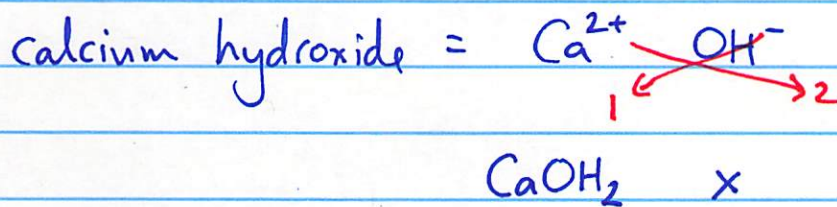 calcium hydroxide = Ca²⁺ OH⁻
1 2
CaOH₂ x